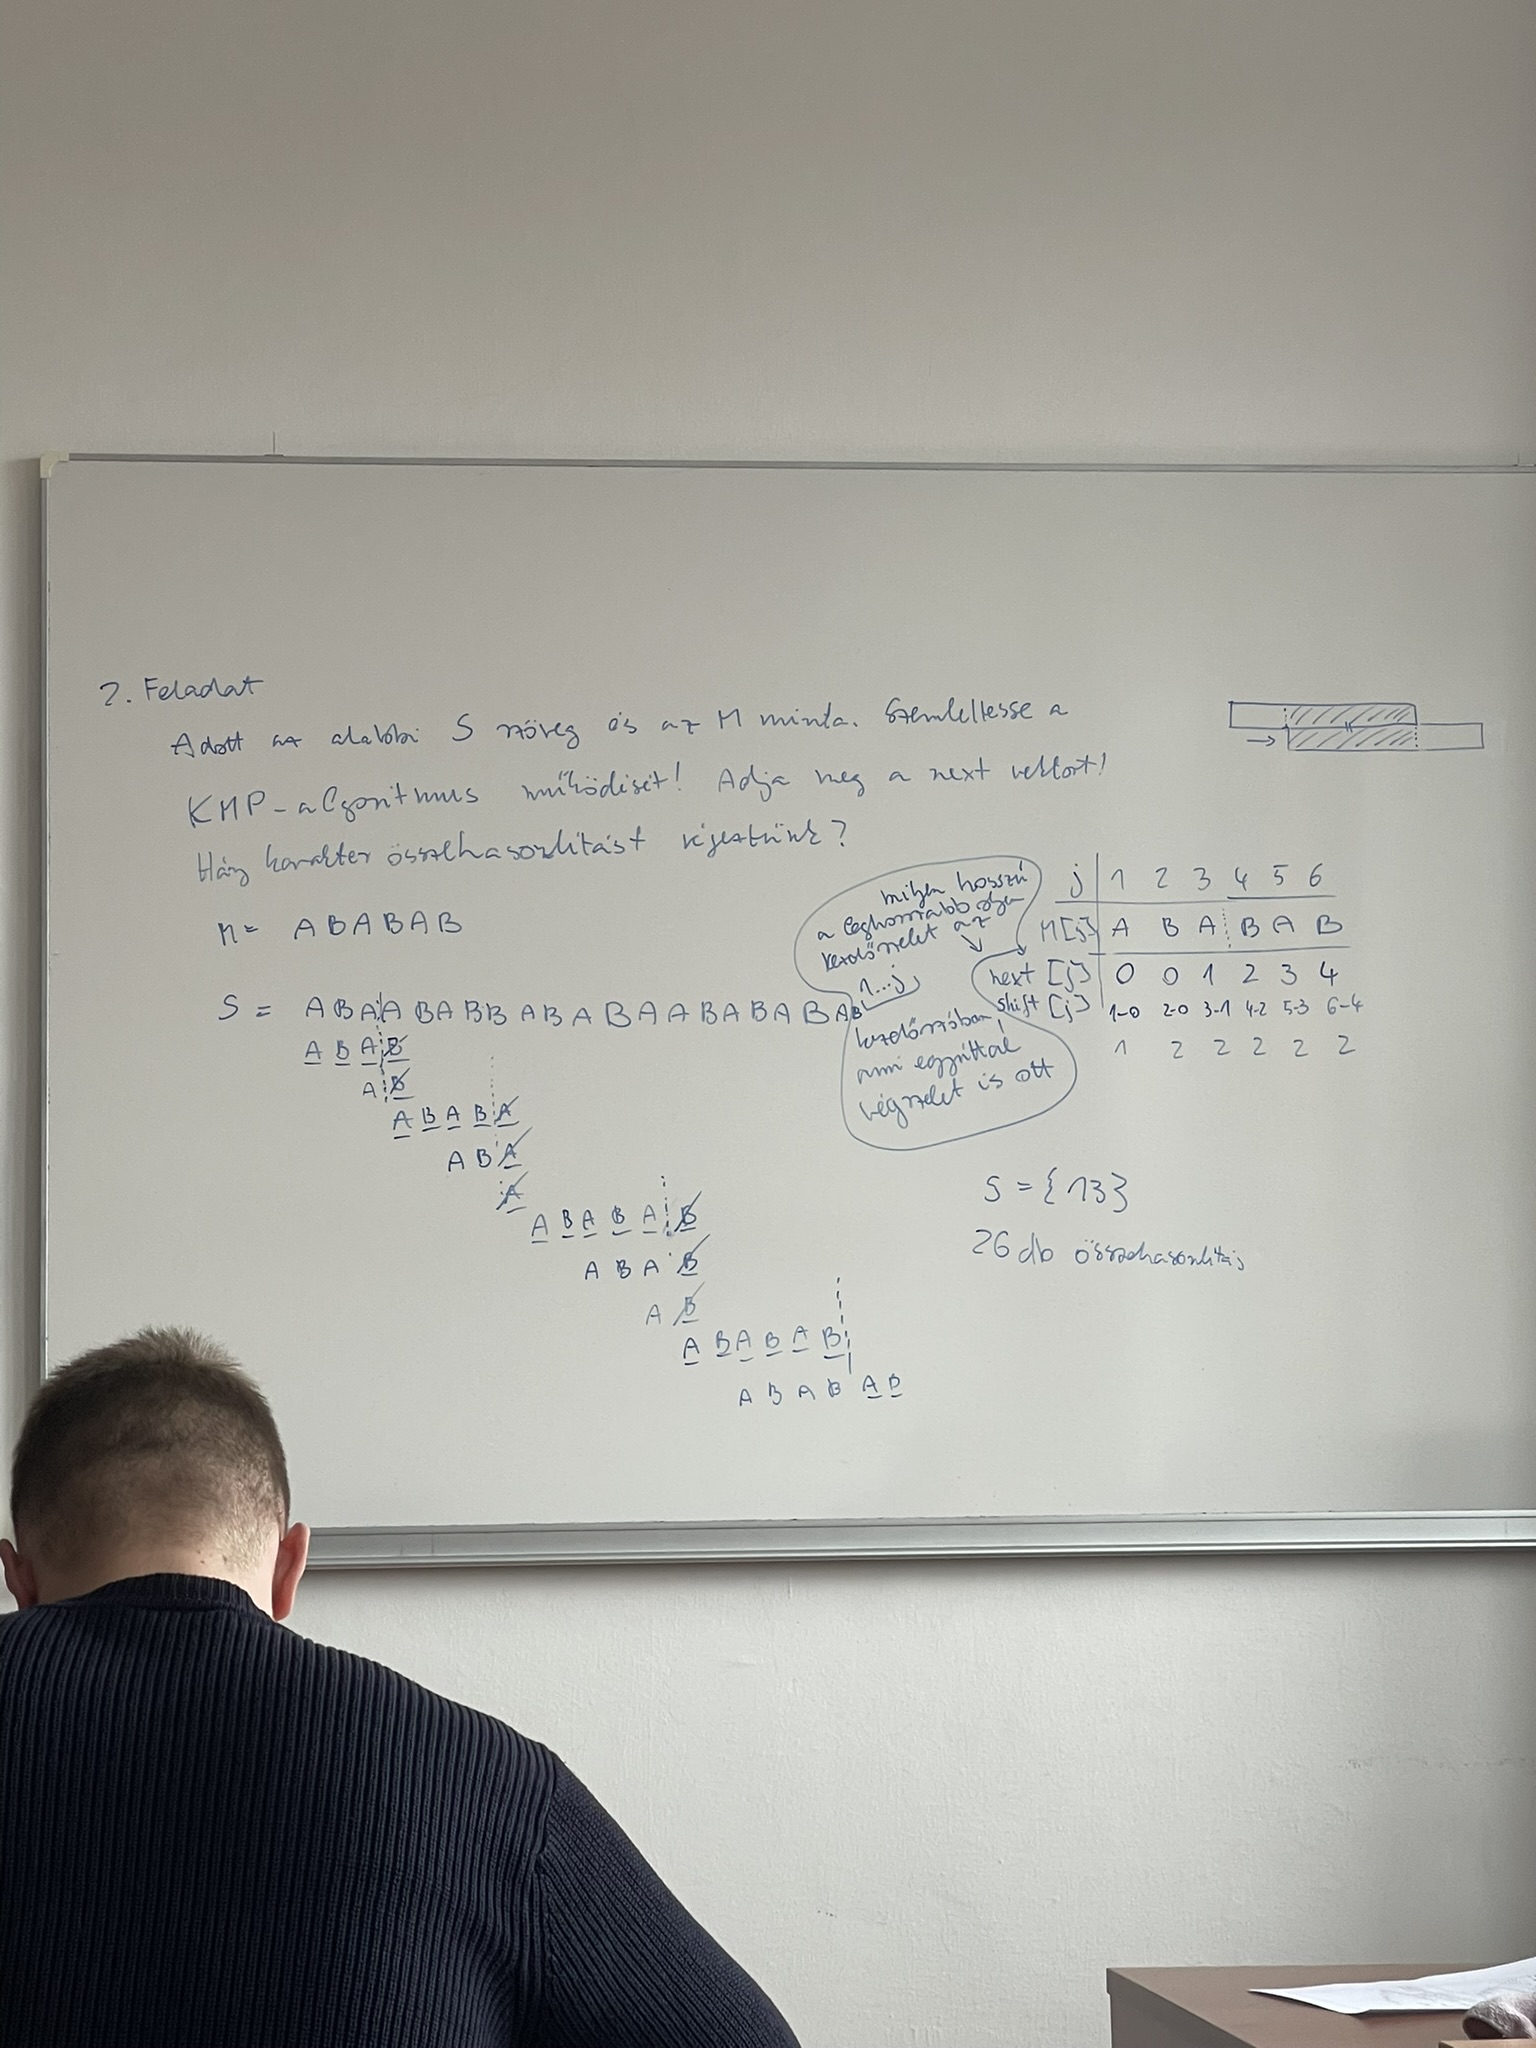 2. Feladat
Adott az alábbi S szöveg és az M minta. Szemléltesse a
KMP-algoritmus működését! Adja meg a next vektort!
Hány karakter összehasonlítást végeztünk?
M = A B A B A B
S = A B A A B A B B A B A B A A B A B A B A B
A B A B
A B
A B A B A
A B A
A
A B A B A B
A B A B
A B
A B A B A B
A B A B A B
milyen hosszú
a leghosszabb olyan
kezdőszelet az
1...j
kezdőrészben
ami egyúttal
végszelet is ott
j 1 2 3 4 5 6
M[j] A B A B A B
next [j] 0 0 1 2 3 4
shift [j] 1-0 2-0 3-1 4-2 5-3 6-4
1 2 2 2 2 2
S = {13}
26 db összehasonlítás